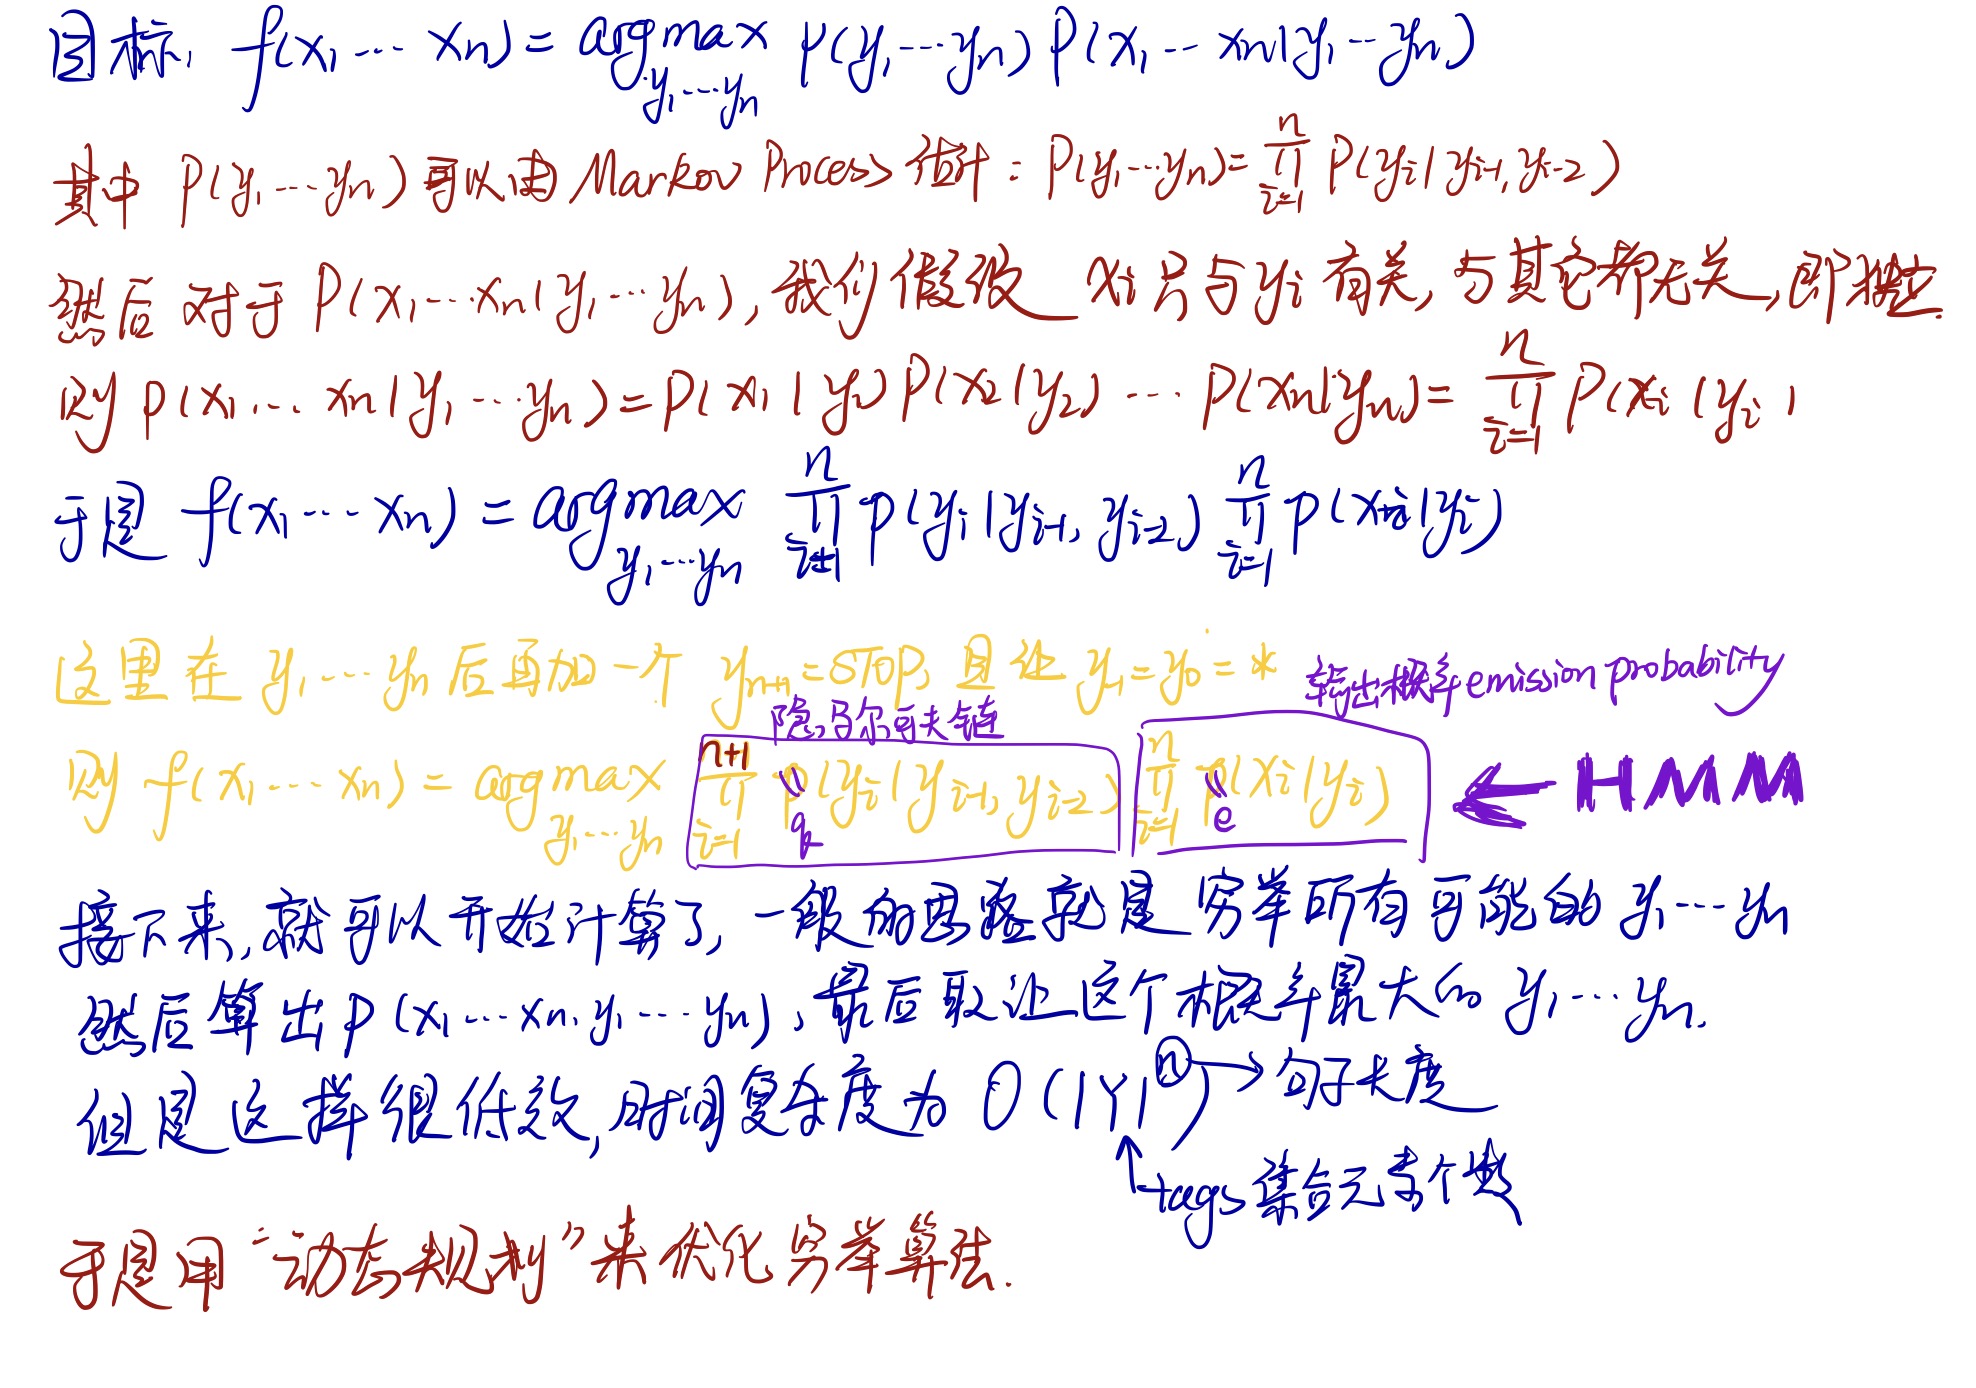 目标, f(x₁⋯xₙ) = argmax P(y₁⋯yₙ) P(x₁⋯xₙ|y₁⋯yₙ)
y₁⋯yₙ
其中 P(y₁⋯yₙ) 可以由 Markov Process 估计: P(y₁⋯yₙ) = ∏ⁿᵢ₌₁ P(yᵢ|yᵢ₋₁, yᵢ₋₂)
然后对于 P(x₁⋯xₙ|y₁⋯yₙ), 我们假设 xᵢ 只与 yᵢ 有关, 与其它都无关, 即独立
则 P(x₁⋯xₙ|y₁⋯yₙ) = P(x₁|y₁) P(x₂|y₂) ⋯ P(xₙ|yₙ) = ∏ⁿᵢ₌₁ P(xᵢ|yᵢ)
于是 f(x₁⋯xₙ) = argmax ∏ⁿᵢ₌₁ P(yᵢ|yᵢ₋₁, yᵢ₋₂) ∏ⁿᵢ₌₁ P(xᵢ|yᵢ)
y₁⋯yₙ
这里在 y₁⋯yₙ 后再加一个 yₙ₊₁ = STOP, 且让 y₋₁ = y₀ = *
输出概率 emission probability
隐马尔可夫链
则 f(x₁⋯xₙ) = argmax ∏ⁿ⁺¹ᵢ₌₁ P(yᵢ|yᵢ₋₁, yᵢ₋₂) ∏ⁿᵢ₌₁ P(xᵢ|yᵢ) ← HMM
y₁⋯yₙ q e
接下来, 就可以开始计算了, 一般的思路就是穷举所有可能的 y₁⋯yₙ
然后算出 P(x₁⋯xₙ, y₁⋯yₙ), 最后取让这个概率最大的 y₁⋯yₙ.
但是这样很低效, 时间复杂度为 O(|Y|ⁿ) → 句子长度
↑ tags 集合元素个数
于是用 "动态规划" 来优化穷举算法.